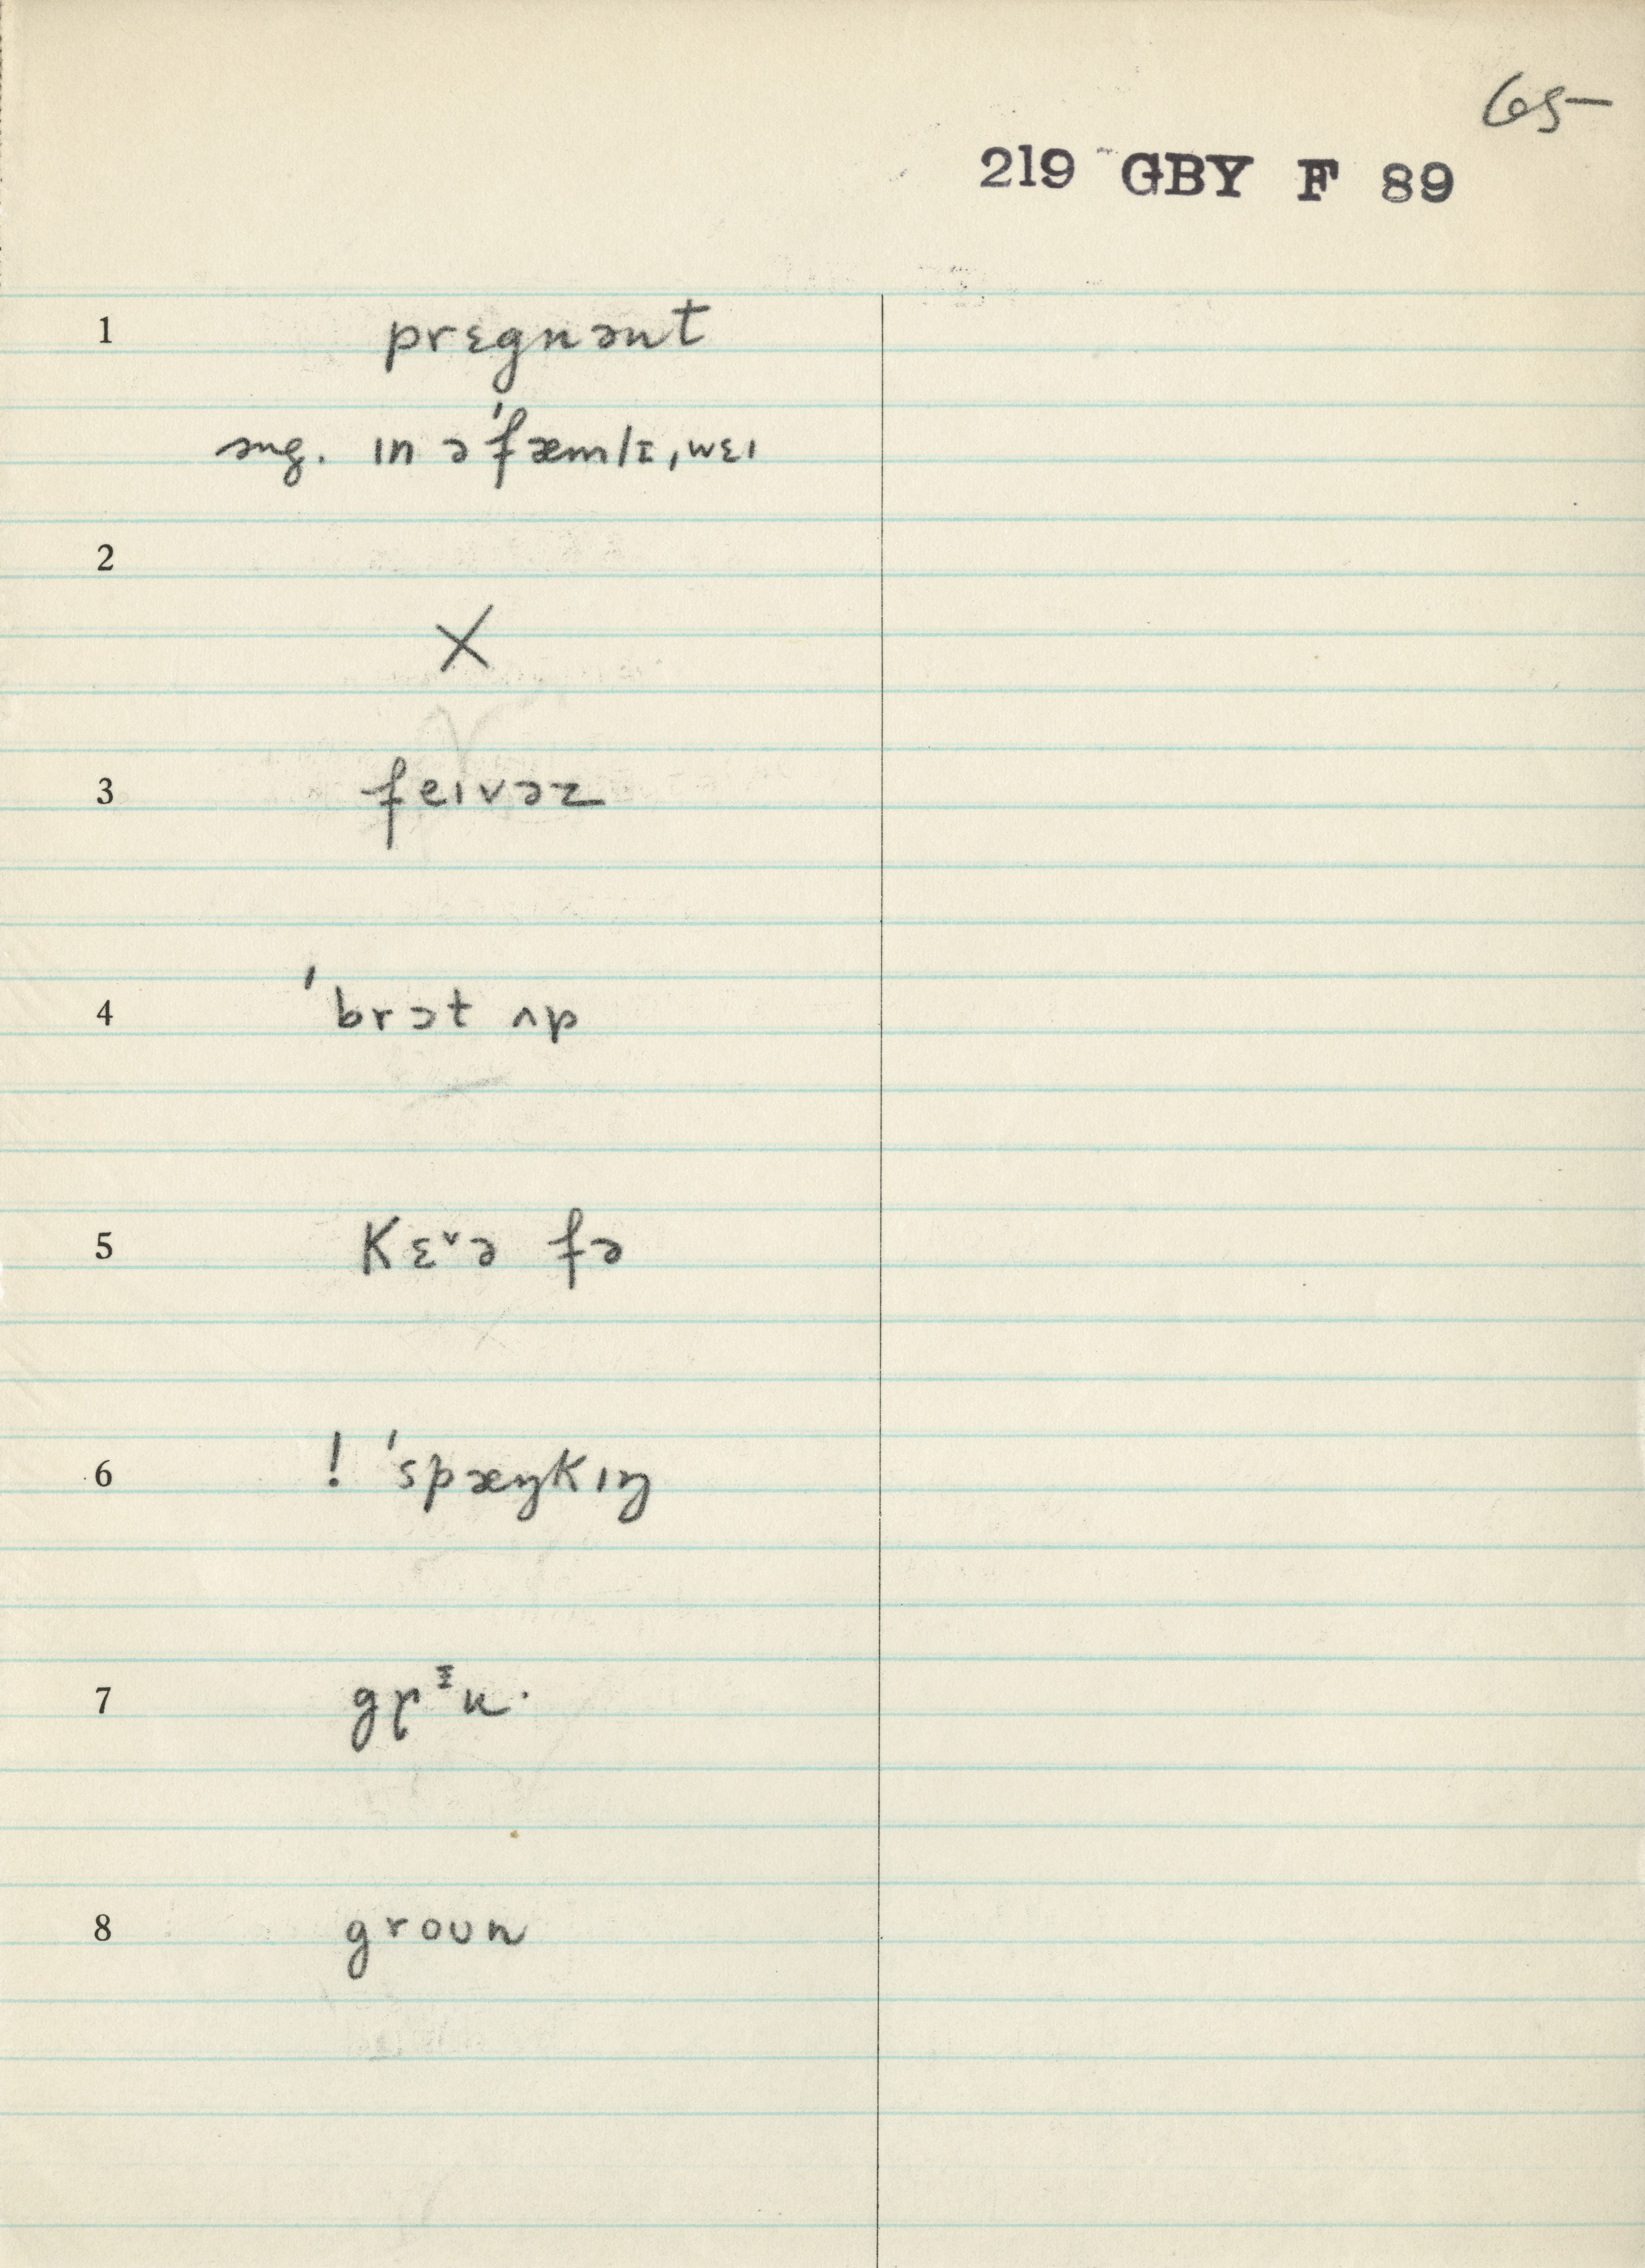 65-
219 GBY F 89
1 prɛgnənt
sug. ɪn ə ˈfæmlɪ ˌwɛɪ
2
X
3 feɪvəz
4 ˈbrɔt ʌp
5 Kɛ˅ə fə
6 ! ˈspæŋkɪŋ
7 grᶦu·
8 groun